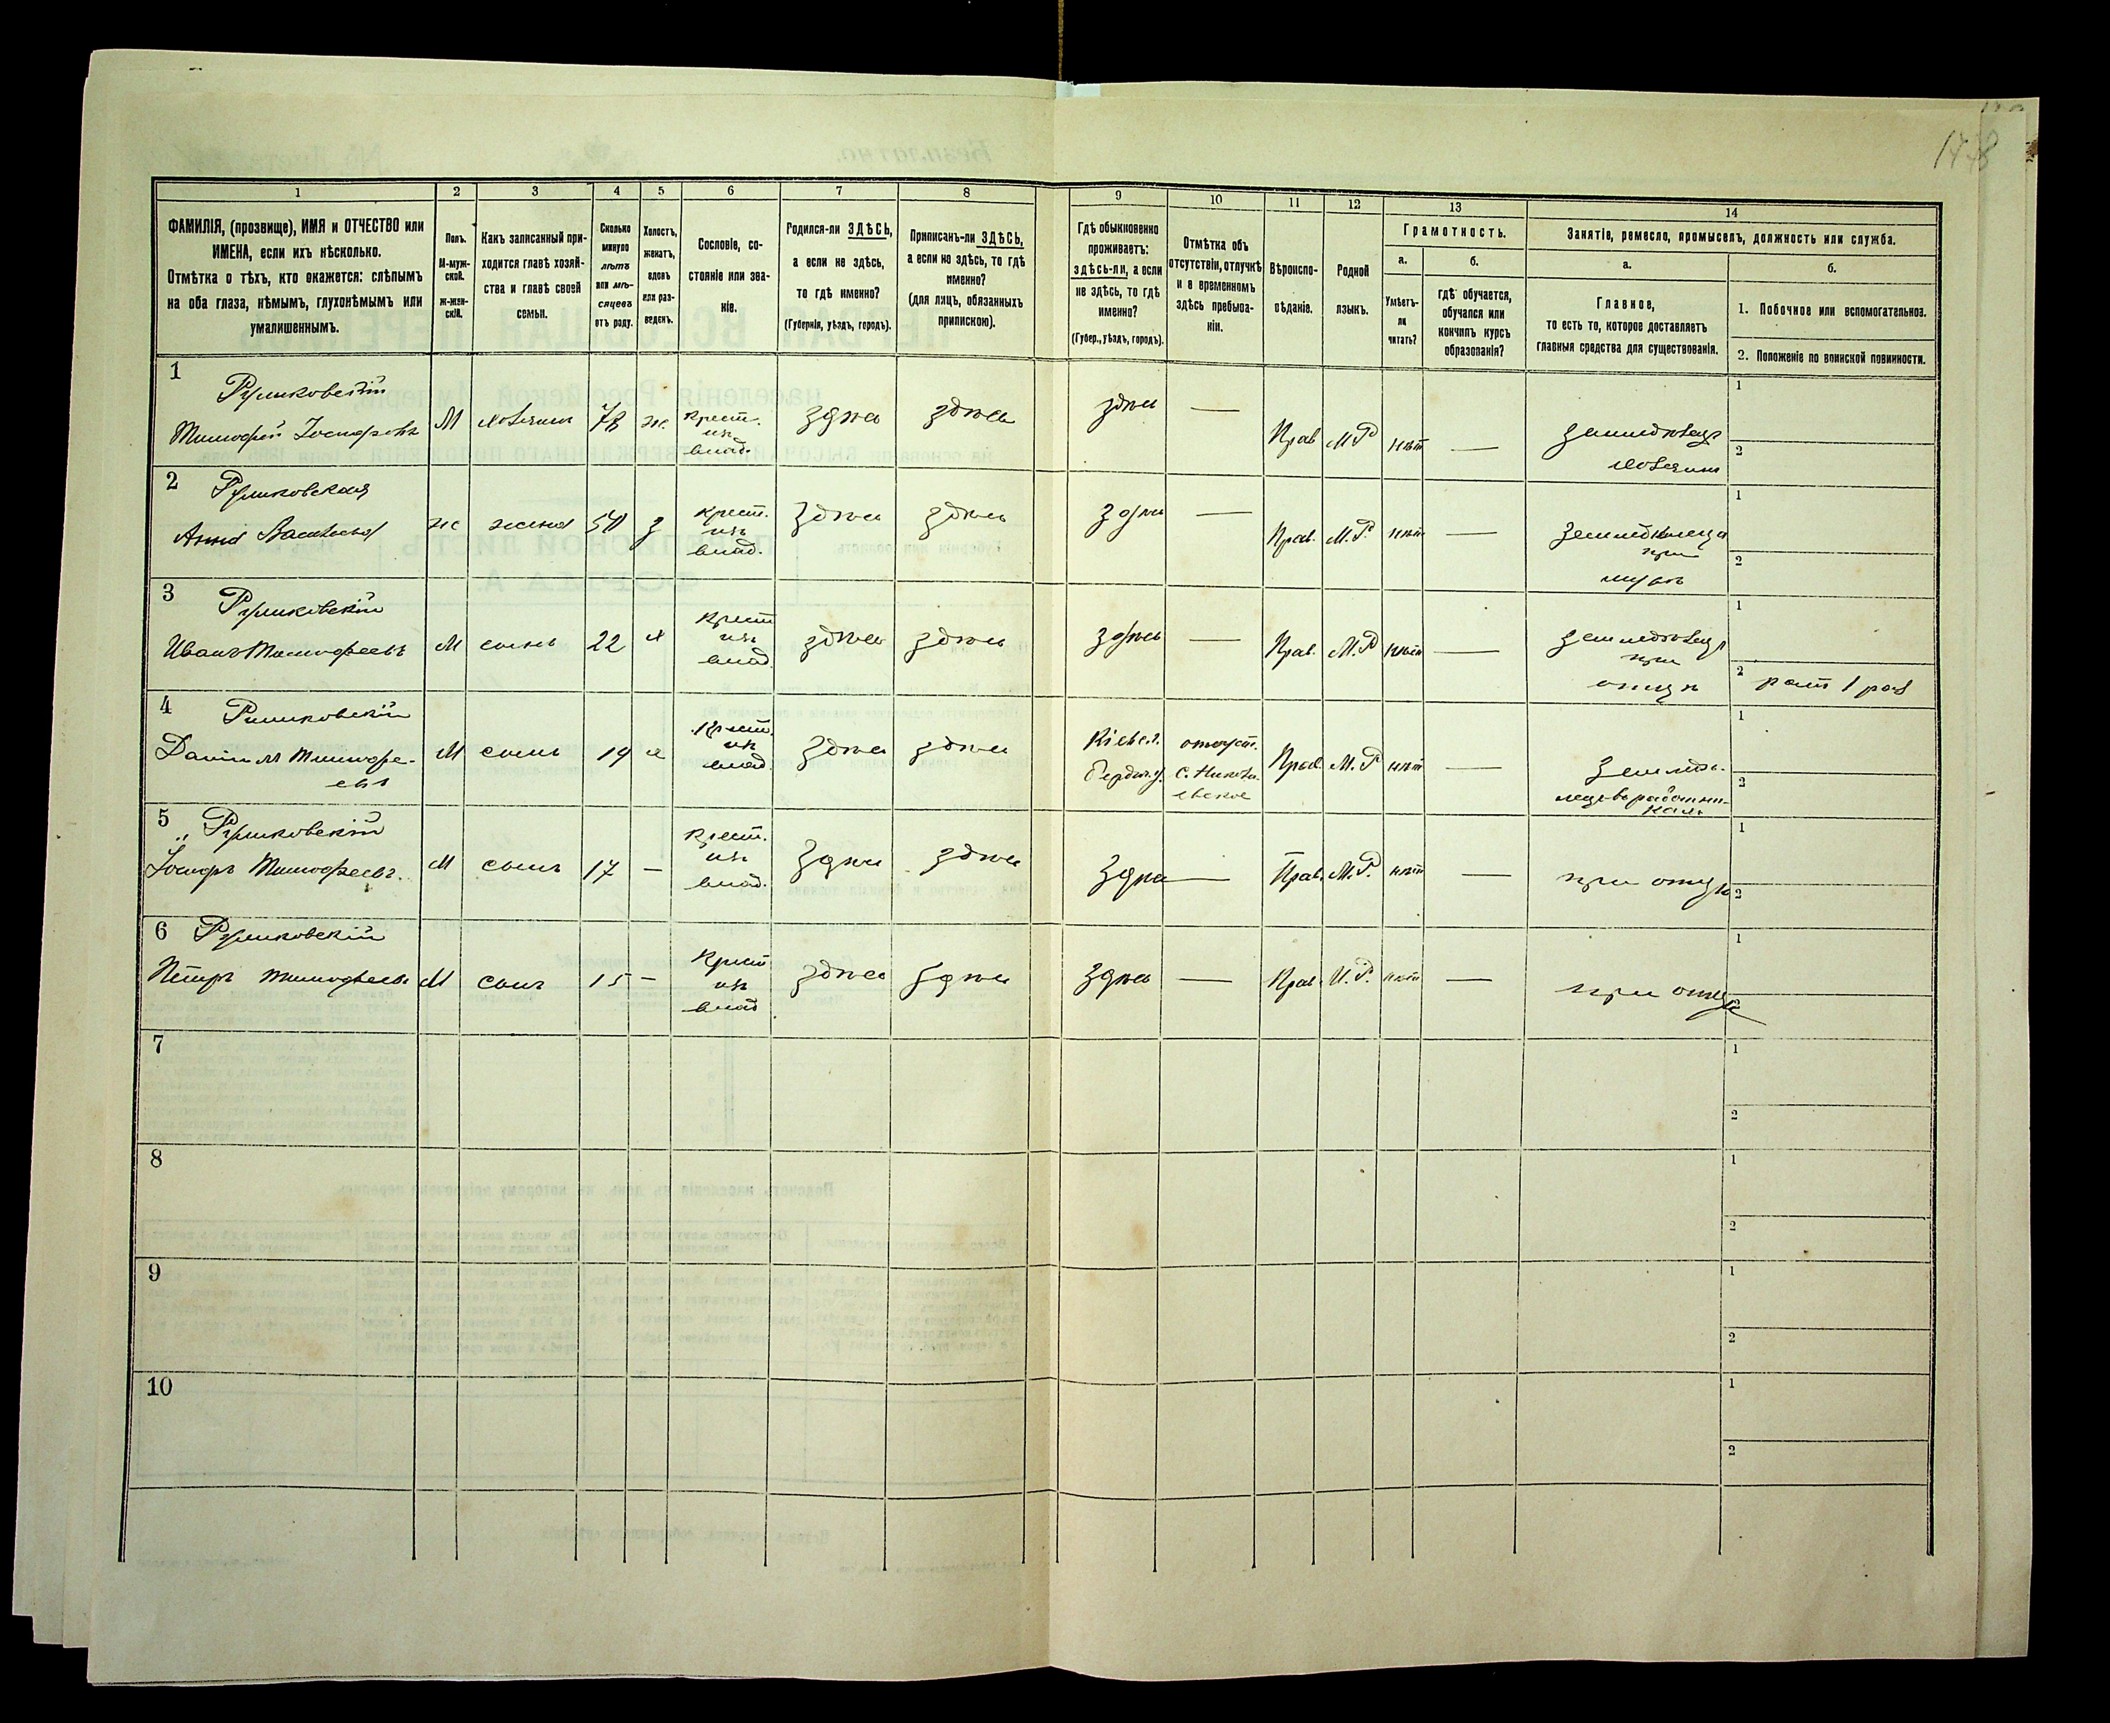 1778
1
2
3
4
5
6
7
8
9
10
11
12
13
14
ФАМИЛІЯ, (прозвище), ИМЯ и ОТЧЕСТВО или
ИМЕНА, если ихъ нѣсколько.
Отмѣтка о тѣхъ, кто окажется: слѣпымъ
на оба глаза, нѣмымъ, глухонѣмымъ или
умалишеннымъ.
Полъ.
М-муж-
ской.
Ж-жен-
скій.
Какъ записанный при-
ходится главѣ хозяй-
ства и главѣ своей
семьи.
Сколько
минуло
лѣтъ
или мѣ-
сяцевъ
отъ роду.
Холостъ,
женатъ,
вдовъ
или раз-
веденъ.
Сословіе, со-
стояніе или зва-
ніе.
Родился-ли ЗДѢСЬ,
а если не здѣсь,
то гдѣ именно?
(Губернія, уѣздъ, городъ).
Приписанъ-ли ЗДѢСЬ,
а если не здѣсь, то гдѣ
именно?
(для лицъ, обязанныхъ
припискою).
Гдѣ обыкновенно
проживаетъ:
здѣсь-ли, а если
не здѣсь, то гдѣ
именно?
(Губер., уѣздъ, городъ).
Отмѣтка объ
отсутствіи, отлучкѣ
и о временномъ
здѣсь пребыва-
ніи.
Вѣроиспо-
вѣданіе.
Родной
языкъ.
Грамотность.
а.
Умѣетъ-
ли
читать?
б.
гдѣ обучается,
обучался или
кончилъ курсъ
образованія?
Занятіе, ремесло, промыселъ, должность или служба.
а.
Главное,
то есть то, которое доставляетъ
главныя средства для существованія.
б.
1. Побочное или вспомогательное.
2. Положеніе по воинской повинности.
1
Руликовскій
Тимофей Іосифовъ
М
хозяинъ
78
ж.
крест.
изъ
влад.
здѣсь
здѣсь
здѣсь
—
Прав
М.Р
нѣт
—
Земледѣлецъ
хозяинъ
1
2
2
Руликовская
Анна
ж
жена
50
з
крест.
изъ
влад.
здѣсь
здѣсь
здѣсь
—
Прав.
М.Р.
нѣт
—
Земледѣлица
при
мужѣ
1
2
3
Руликовскій
Иванъ Тимофеевъ
М
сынъ
22
х
крест
изъ
влад.
здѣсь
здѣсь
здѣсь
—
Прав.
М.Р
нѣт
—
Земледѣлецъ
при
отцѣ
1
2
рат 1 раз
4
Руликовскій
Даніилъ Тимофе-
евъ
М
сынъ
19
х
Крест.
изъ
влад.
здѣсь
здѣсь
Кіевс.г.
Бердич.у.
отсутст.
с. Никола-
евское
Прав.
М.Р
нѣт
—
Земледѣ-
лецъ работни-
комъ
1
2
5
Руликовскій
Іосифъ Тимофеевъ.
М
сынъ
17
—
крест.
изъ
влад.
здѣсь
здѣсь
здѣсь
—
Прав.
М.Р.
нѣт
—
при отцѣ
1
2
6
Руликовскій
Петръ Тимофеевъ
М
сынъ
15
—
крест
изъ
влад
здѣсь
здѣсь
здѣсь
—
Прав.
М.Р.
нѣт
—
при отцѣ
1
7
1
2
8
1
2
9
1
2
10
1
2